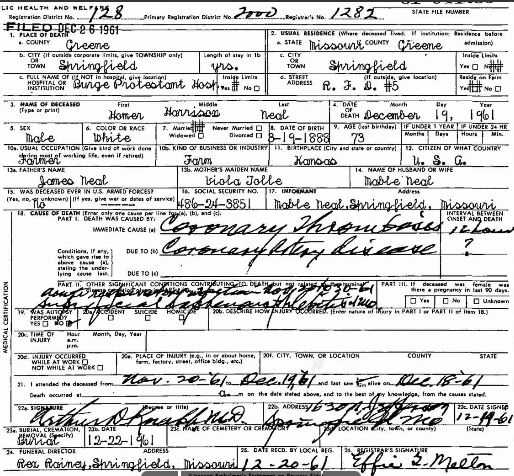 LIC HEALTH AND WELFARE
Registration District No. 128 Primary Registration District No. 2000 Registrar's No. 1282 STATE FILE NUMBER
FILED DEC 26 1961
1. PLACE OF DEATH
a. COUNTY Greene
2. USUAL RESIDENCE (Where deceased lived. If institution: Residence before admission)
a. STATE Missouri Greene
b. CITY (If outside corporate limits, give TOWNSHIP only) OR TOWN Springfield
Length of stay in 1b yrs.
c. CITY OR TOWN Springfield
Inside Limits Yes No
c. FULL NAME OF (If NOT in hospital, give location) HOSPITAL OR INSTITUTION Burge Protestant Hosp.
Inside Limits Yes No
d. STREET ADDRESS R. F. D. #5
Reside on Farm Yes No
3. NAME OF DECEASED (Type or print) First Homer Middle Harrison Last Neal
4. DATE OF DEATH Month December Day 19, Year 1961
5. SEX Male
6. COLOR OR RACE White
7. Married Never Married Widowed Divorced
8. DATE OF BIRTH 8-19-1888
9. AGE (last birthday) 73
IF UNDER 1 YEAR Months Days
IF UNDER 24 HR Hours Min.
10a. USUAL OCCUPATION (Give kind of work done during most of working life, even if retired) Farmer
10b. KIND OF BUSINESS OR INDUSTRY Farm
11. BIRTHPLACE (City and state or country) Kansas
12. CITIZEN OF WHAT COUNTRY U. S. A.
13a. FATHER'S NAME James Neal
13b. MOTHER'S MAIDEN NAME Viola Jolle
14. NAME OF HUSBAND OR WIFE Mable Neal
15. WAS DECEASED EVER IN U.S. ARMED FORCES? (Yes, no, or unknown) (If yes, give war or dates of service) No
16. SOCIAL SECURITY NO. 486-24-3851
17. INFORMANT Mable Neal, Springfield, Missouri
18. CAUSE OF DEATH (Enter only one cause per line for (a), (b), and (c).
PART I. DEATH WAS CAUSED BY:
IMMEDIATE CAUSE (a) Coronary Thrombosis
INTERVAL BETWEEN ONSET AND DEATH 12 hours
Conditions, if any, which gave rise to above cause (a), stating the underlying cause last.
DUE TO (b) Coronary artery disease ?
DUE TO (c)
PART II. OTHER SIGNIFICANT CONDITIONS CONTRIBUTING TO DEATH
PART III. If deceased was female was there a pregnancy in last 90 days.
Yes No Unknown
MEDICAL CERTIFICATION
19. WAS AUTOPSY PERFORMED? YES NO
20a. ACCIDENT SUICIDE HOMICIDE
20b. DESCRIBE HOW INJURY OCCURRED. (Enter nature of injury in PART I or PART II of item 18.)
20c. TIME OF INJURY Hour a.m. p.m. Month, Day, Year
20d. INJURY OCCURRED WHILE AT WORK NOT WHILE AT WORK
20e. PLACE OF INJURY (e.g., in or about home, farm, factory, street, office bldg., etc.)
20f. CITY, TOWN, OR LOCATION COUNTY STATE
21. I attended the deceased from Nov. 20-61 to Dec. 19, 61 and last saw alive on Dec. 18-61
Death occurred at m on the date stated above, and to the best of my knowledge, from the causes stated.
22a. SIGNATURE (Degree or title)
22b. ADDRESS
22c. DATE SIGNED 12-19-61
23a. BURIAL, CREMATION, REMOVAL (Specify) Burial
23b. DATE 12-22-1961
23c. NAME OF CEMETERY OR CREMATORY
23d. LOCATION (City, town, or county) (State)
24. FUNERAL DIRECTOR Rex Rainey, Springfield, Missouri
25. DATE RECD. BY LOCAL REG. 12-20-61
26. REGISTRAR'S SIGNATURE Effie E. Mellon